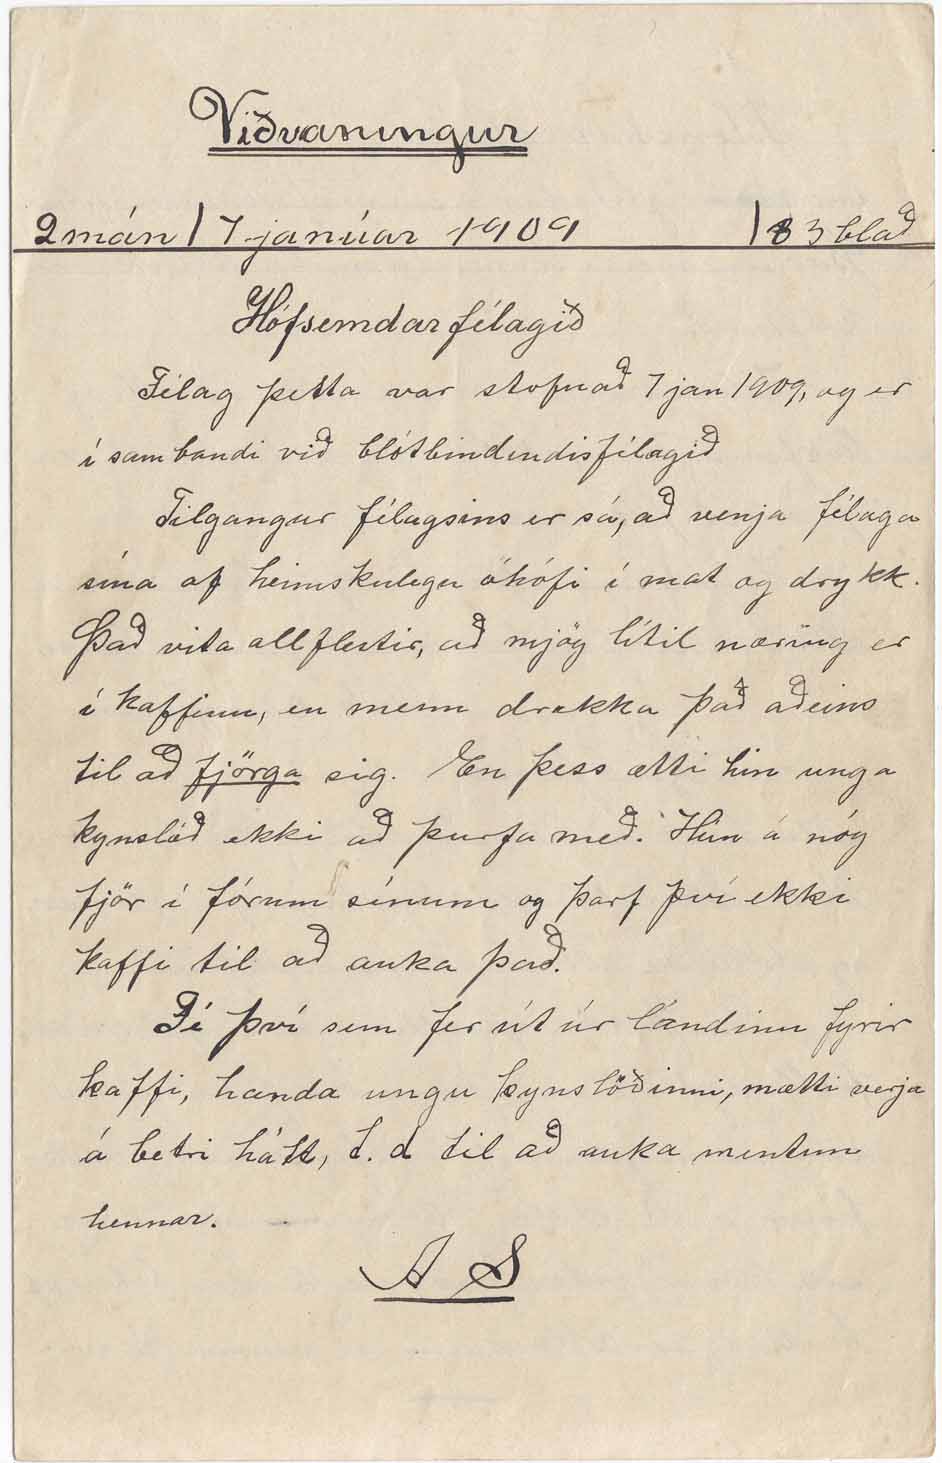 Viðvaningur
2 mán | 7 janúar 1909 | 3 blað
Hófsemdarfélagið
Félag þetta var stofnað 7 jan 1909, og er
í sambandi við blótbindendisfélagið
Tilgangur félagsins er sá, að venja félaga
sína af heimskulegu óhófi í mat og drykk.
Það vita allflestir, að mjög lítil næring er
í kaffinu, en menn drekka það aðeins
til að fjörga sig. En þess ætti hin unga
kynslóð ekki að þurfa með. Hún á nóg
fjör í fórum sínum og þarf því ekki
kaffi til að auka það.
Fé því sem fer út úr landinu fyrir
kaffi, handa ungu kynslóðinni, mætti verja
á betri hátt, t.d til að auka mentun
hennar.
A S